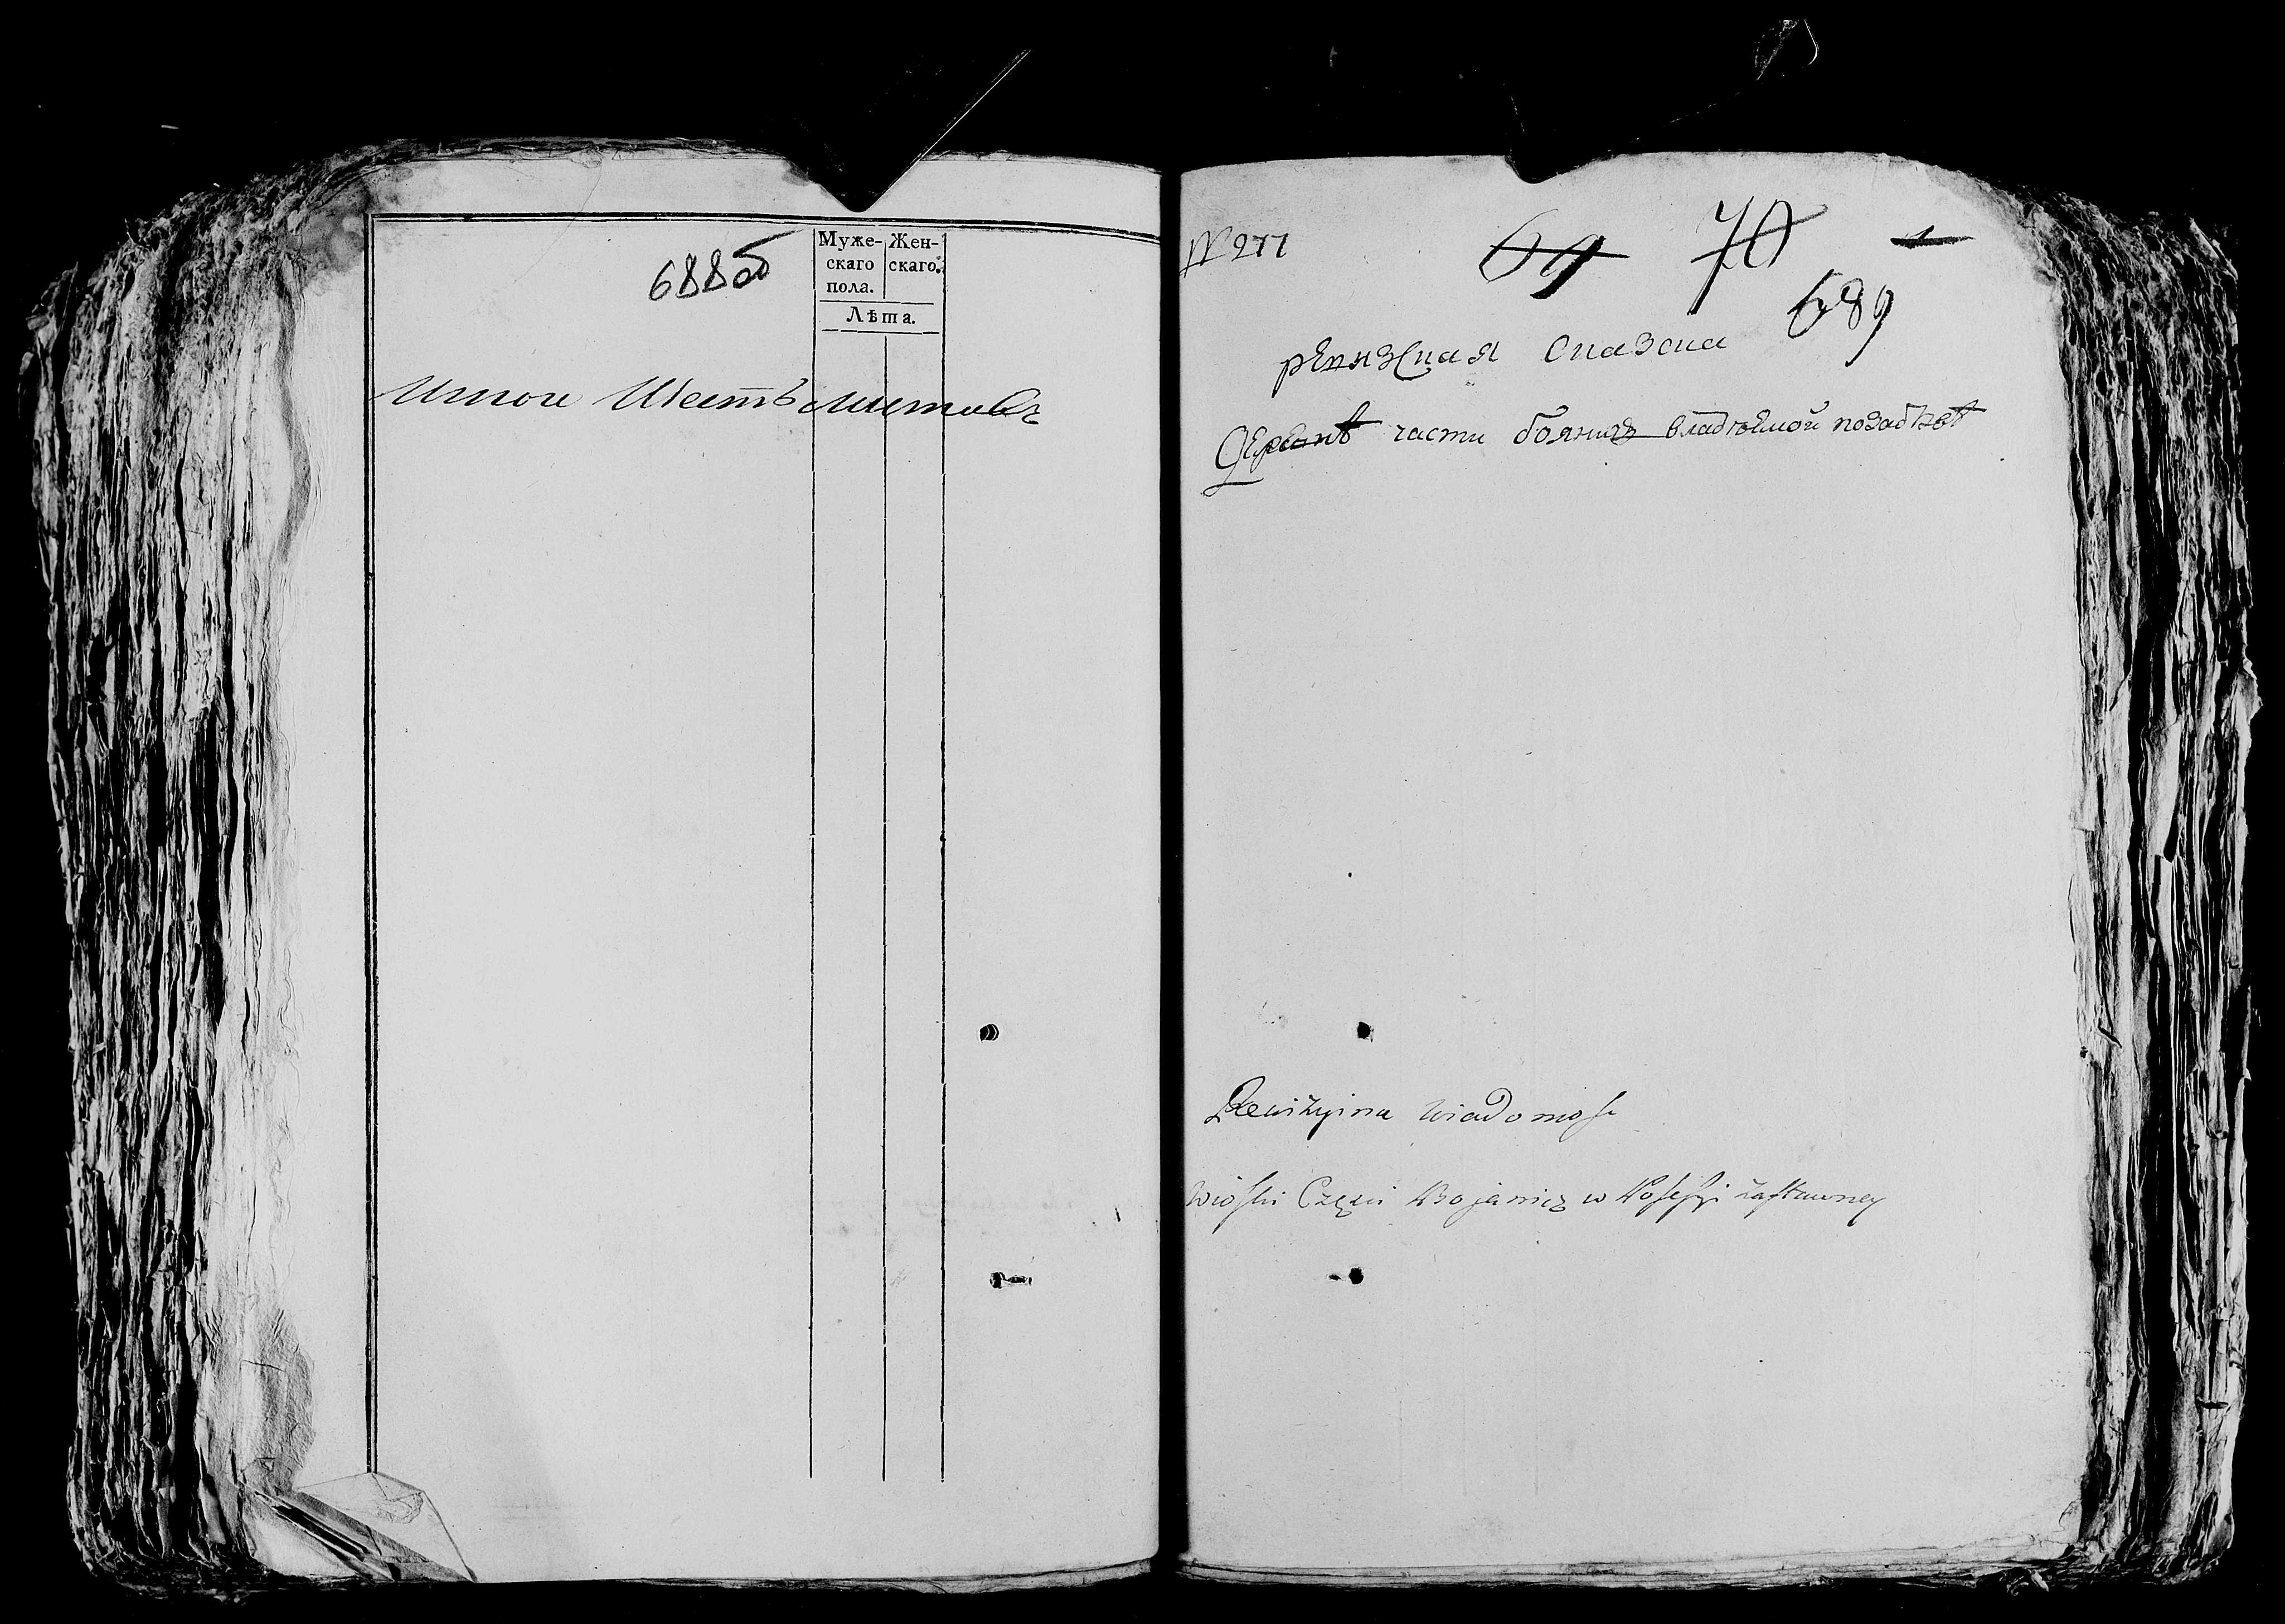 688об
Муже- Жен-
скаго скаго.
пола.
Лѣта.
Итого Шесть листовъ
№ 277
69 70
689
ревизская сказка
Деревнѣ части боянич владѣемой
Rewizyina wiadomosc
wioski Części Bojanicz w Posessyi zastawney